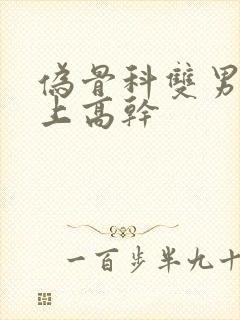 偽骨科雙男
上高幹
一百步半九十